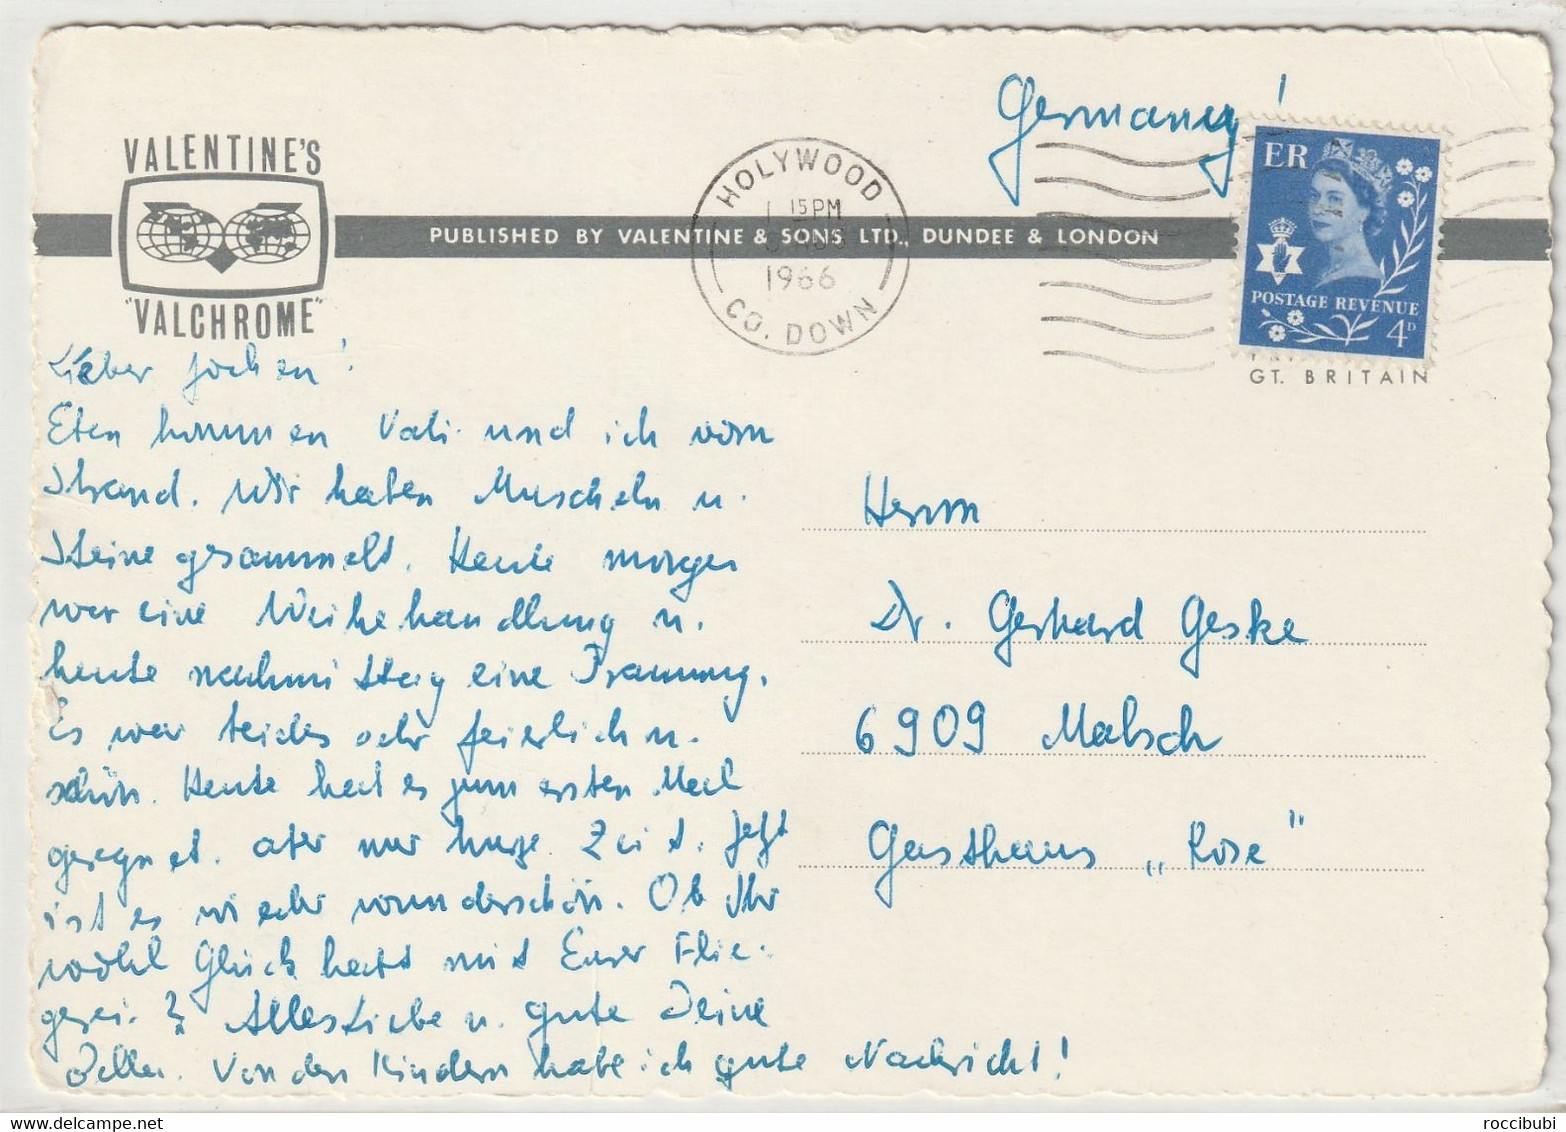 Germany!
VALENTINE'S
"VALCHROME"
PUBLISHED BY VALENTINE & SONS, LTD., DUNDEE & LONDON
HOLYWOOD
1 15 PM
1966
CO. DOWN
ER
POSTAGE REVENUE
4D
GT. BRITAIN
Lieber Jochen!
Eben kommen Vati und ich vom
Strand. Wir haben Muscheln u.
Steine gesammelt. Heute morgen
war eine Weihehandlung u.
heute nachmittag eine Trauung.
Es war beides sehr feierlich u.
schön. Heute hat es zum ersten Mal
geregnet. aber nur kurze Zeit. Jetzt
ist es wieder wunderschön. Ob Ihr
wohl Glück habt mit Eurer Flie-
gerei? Alles Liebe u. gute Deine
Von den Kindern habe ich gute Nachricht!
Herrn
Dr. Gerhard Geske
6909 Malsch
Gasthaus „Rose"
roccibubi